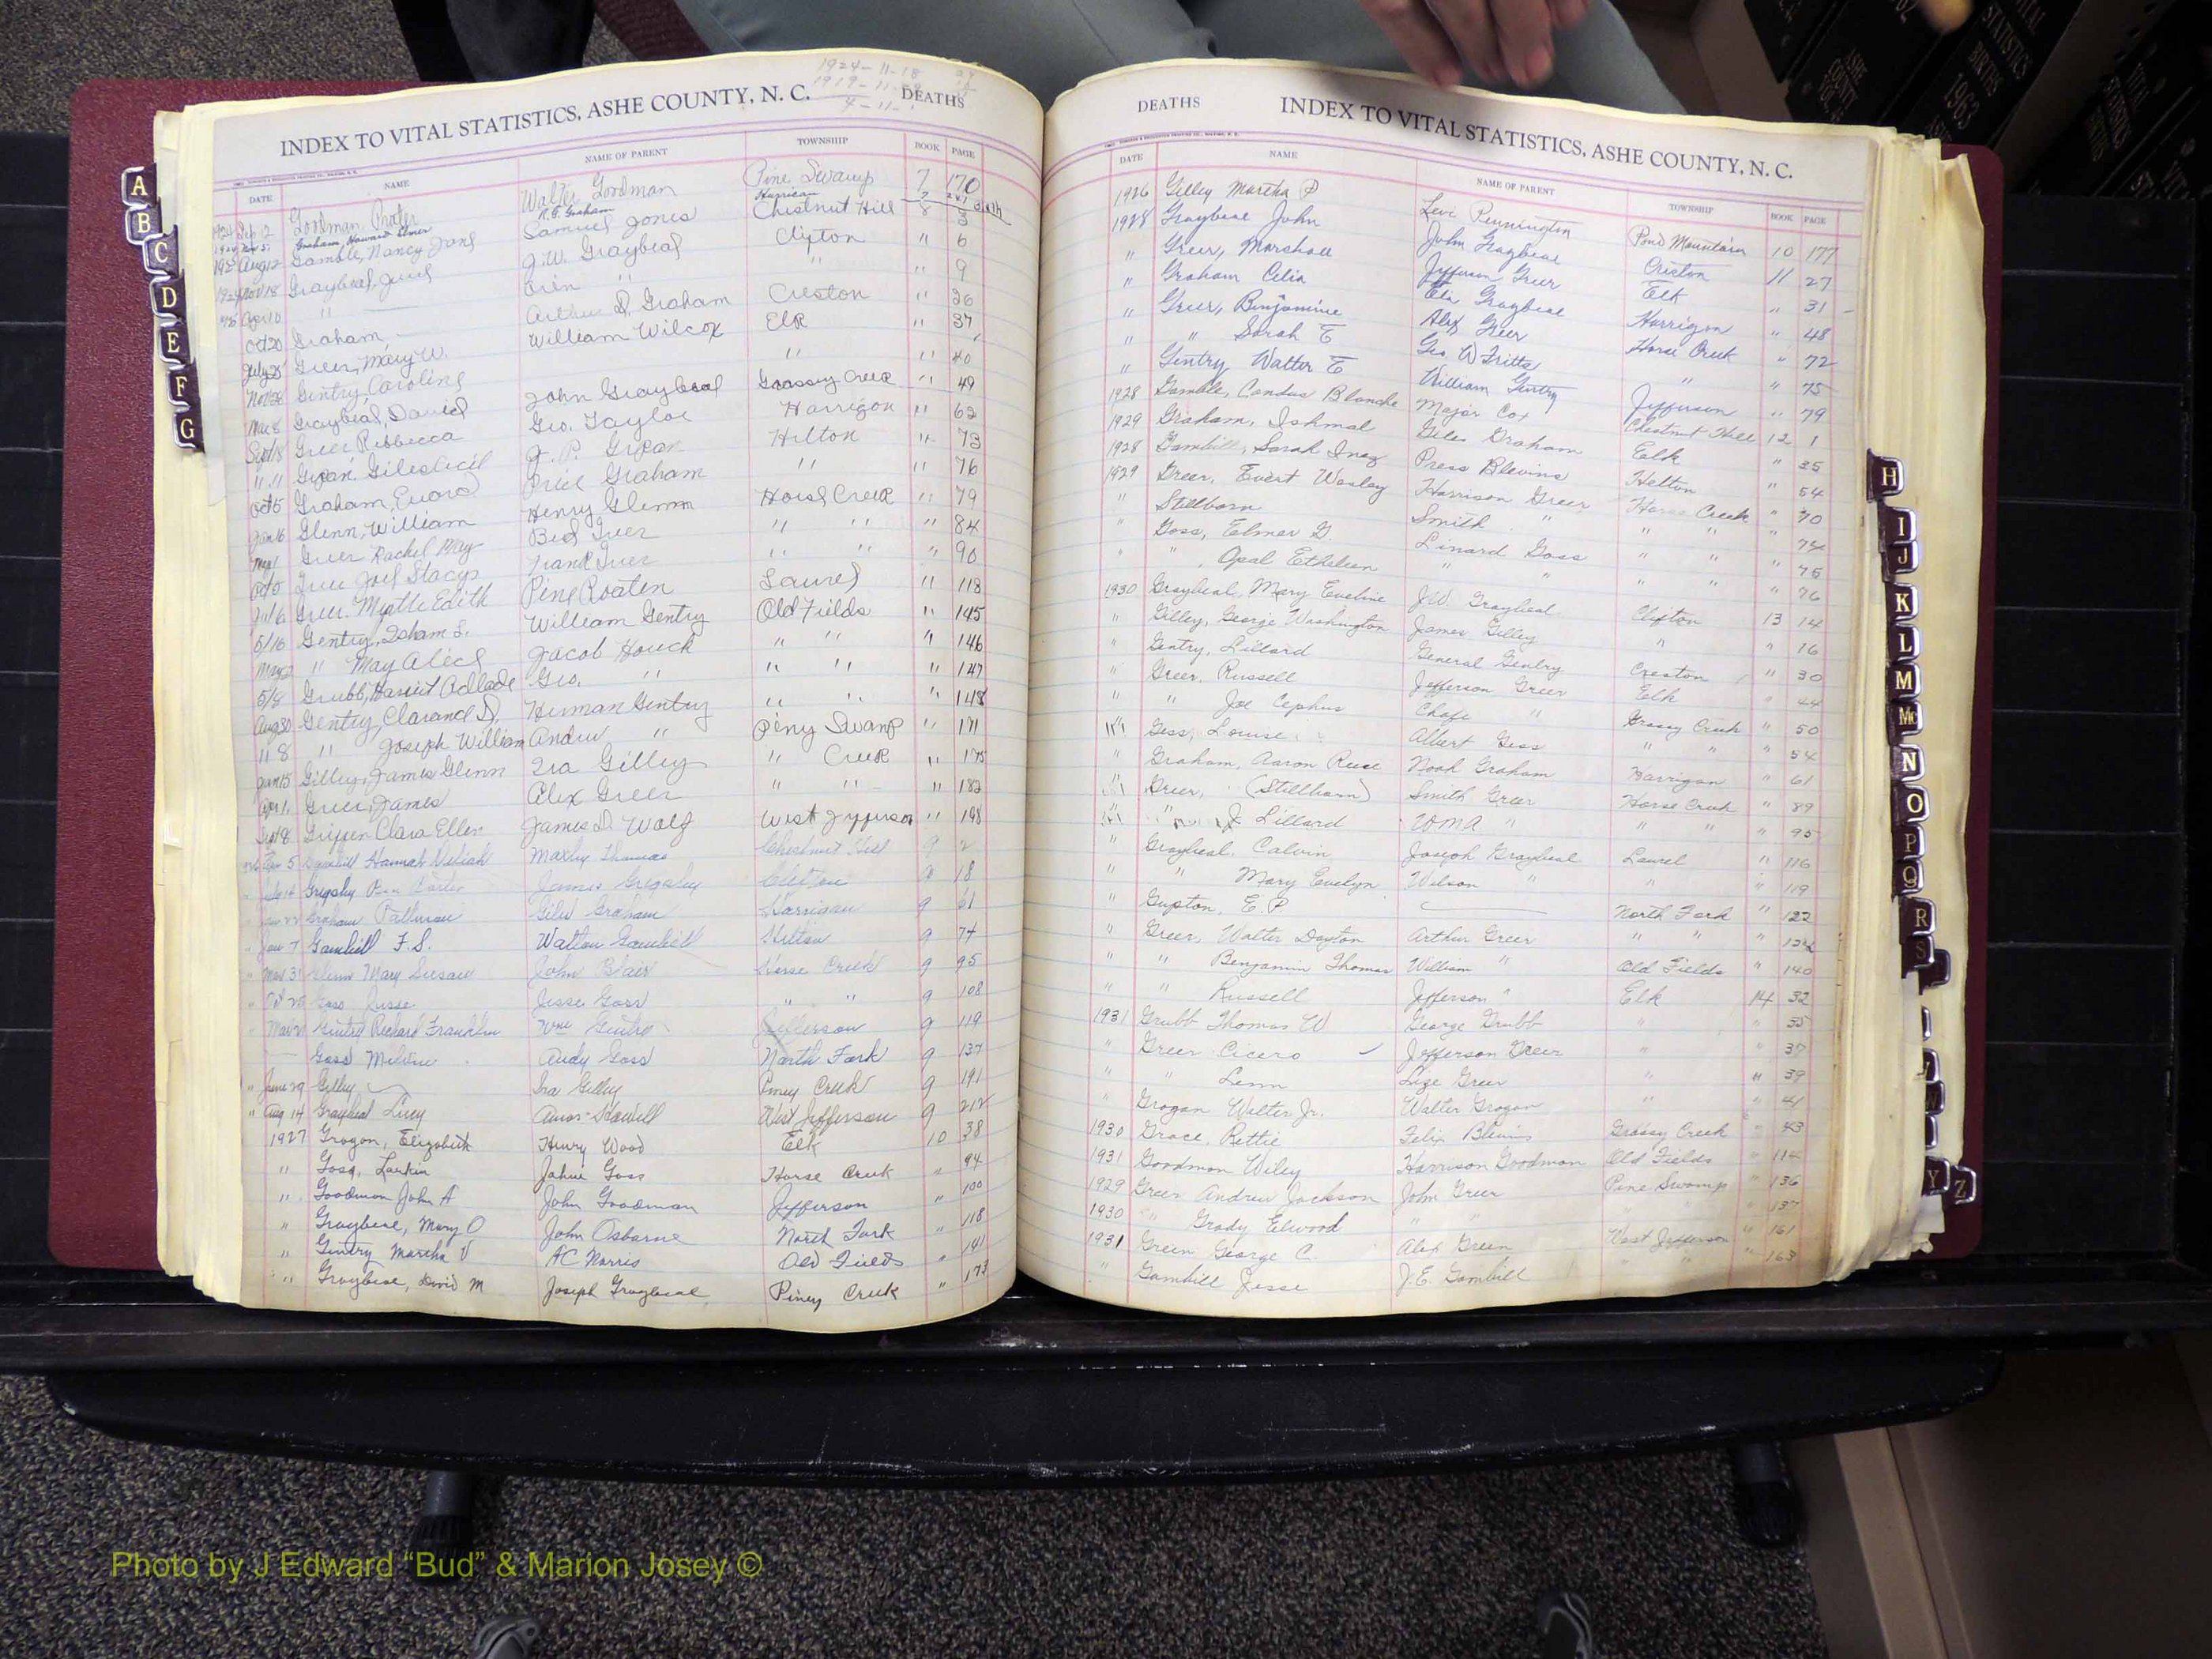 1924-11-18
1919-11-
4-11-
INDEX TO VITAL STATISTICS, ASHE COUNTY, N. C. DEATHS
DATE NAME NAME OF PARENT TOWNSHIP BOOK PAGE
Goodman Walter Goodman Pine Swamp 7 170
Graham, Howard R.G. Graham 7
Aug 12 Gamble, Nancy Jane Samuel Jones Chestnut Hill 8 3
Nov 18 Graybeal, J.W. Graybeal Clifton " 6
Apr 10 " — Orin " " " 9
Oct 20 Graham, — Arthur D. Graham Creston " 26
July 25 Greer, Mary W. William Wilcox Elk " 37
Nov 28 Gentry, Caroline " " 40
Mar 8 Graybeal, David John Graybeal Grassy Creek " 49
Sept 18 Greer, Rebbecca Geo. Taylor Harrigon " 62
11.11 Giles Cecil J. P. Helton " 73
Oct 5 Graham, Price Graham " " 76
Jan 16 Glenn, William Henry Glenn Horse Creek " 79
May 1 Greer Rachel May Greer " " " 84
Oct 5 Greer Joel Stacy Frank Greer " " " 90
Greer. Myrtle Edith Pine Roaten Laurel " 118
5/16 Gentry, Isham S. William Gentry Old Fields " 145
" May Alice Jacob Houck " " " 146
5/8 Grubb, Harriet Geo. " " " " 147
Aug 30 Gentry, Clarance D, Herman Gentry " " " 148
11 8 " Joseph William Andrew " Piny Swamp " 171
Jan 15 Gilley, James Glenn Ira Gilley " Creek " 175
Apr 1. Greer, James Alex Greer " " " 182
Clara Ellen James D. Wolf West Jefferson " 198
5 Hannah Chestnut Hill 9 2
Grigsby James Grigsby Clifton 9 18
Graham Giles Graham Harrigan 9 61
" Jan 7 Gambill F. S. Gambill Helton 9 74
" Mar 31 Glenn Mary Susan John Blair Horse Creek 9 95
" Oct 25 Goss Jesse Jesse Goss " " 9 108
" Gentry Richard Franklin Wm Gentry Jefferson 9 119
— Goss Andy Goss North Fork 9 137
" June 29 Gilley Ira Gilley Piney Creek 9 191
" Aug 14 Graybeal Lucy West Jefferson 9 212
1927 Grogon, Elizabeth Henry Wood Elk 10 38
" Goss, Larkin Goss Horse Creek " 94
" Goodman John A John Goodman Jefferson " 100
" Graybeal, Mary O John Osborne North Fork " 118
" Gentry Martha V AC Norris Old Fields " 141
" Graybeal, David M Joseph Graybeal Piney Creek " 173
DEATHS INDEX TO VITAL STATISTICS, ASHE COUNTY, N. C.
DATE NAME NAME OF PARENT TOWNSHIP BOOK PAGE
1926 Gilley Martha P Levi Pennington Pond Mountain 10 177
1928 Graybeal John John Graybeal Creston 11 27
" Greer, Marshall Jefferson Greer Elk " 31
" Graham Celia Eli Graybeal Harrigon " 48
" Greer, Benjamine Alex Greer Horse Creek " 72
" " Sarah E Geo W Fritts " " 75
" Gentry Walter E William Gentry Jefferson " 79
1928 Gamble, Candus Blanche Major Cox Chestnut Hill 12 1
1929 Graham, Ishmal Giles Graham Elk " 35
1928 Gambill, Sarah Inez Press Blevins Helton " 54
1929 Greer, Evert Wesley Harrison Greer Horse Creek " 70
" Stillborn Smith " " " " 74
" Goss, Elmer G. Linard Goss " " " 75
" " Opal Ethelean " " " " " 76
1930 Graybeal, Mary Eveline J.W. Graybeal Clifton 13 14
" Gilley, George Washington James Gilley " " 16
" Gentry, Lillard General Gentry Creston " 30
" Greer, Russell Jefferson Greer Elk " 44
" " Joe Cephus Chafe " Grassy Creek " 50
" Gess, Louise Albert Gess " " " 54
" Graham, Aaron Reese Noah Graham Harrigan " 61
" Greer, (Stillborn) Smith Greer Horse Creek " 89
" " J Lillard " " " " 95
" Graybeal, Calvin Joseph Graybeal Laurel " 116
" " Mary Evelyn Wilson " " " 119
" Gupton, E. P. — North Fork " 122
" Greer, Walter Dayton Arthur Greer " " "
" " Benjamin Thomas William " Old Fields " 140
" " Russell Jefferson " Elk 14 32
1931 Grubb Thomas W George Grubb " 35
" Greer Cicero Jefferson Greer " 37
" " Lenn Lize Greer " " 39
" Grogan Walter Jr. Walter Grogan " " 41
1930 Grace, Rettie Felix Blevins Grassy Creek " 43
1931 Goodman Wiley Harrison Goodman Old Fields " 114
1929 Greer Andrew Jackson John Greer Pine Swamp " 136
1930 " Grady Elwood " " " " 137
1931 Green George C. Alex Green West Jefferson " 161
" Gambill Jesse J.E. Gambill " " " 163
A
B
C
D
E
F
G
H
I
J
K
L
M
Mc
N
O
P
Q
R
S
Y
Z
ASHE COUNTY
VITAL STATISTICS BIRTHS 1963
Photo by J Edward “Bud” & Marion Josey ©